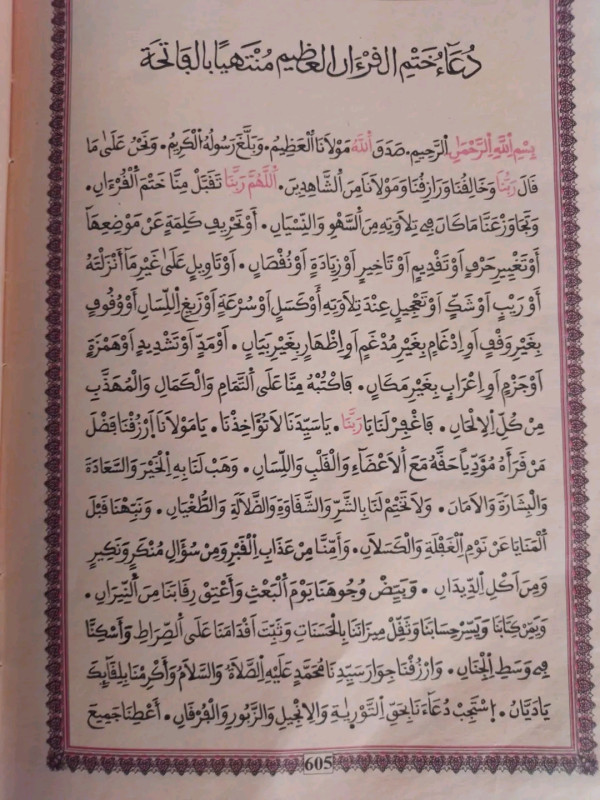 دُعَآءُ خَتْمِ الْفُرْءَانِ الْعَظِيمِ مُنْتَهِيًا بِالْفَاتِحَةِ
بِسْمِ اِللَّهِ اِلرَّحْمَٰنِ اِلرَّحِيمِ. صَدَقَ اَللَّهُ مَوْلَانَا اَلْعَظِيمُ. وَبَلَّغَ رَسُولُهُ اُلْكَرِيمُ. وَنَحْنُ عَلَىٰ مَا
قَالَ رَبُّنَا وَخَالِقُنَا وَرَازِقُنَا وَمَوْلَانَا مِنَ اَلشَّاهِدِينَ. اَللَّهُمَّ رَبَّنَا تَقَبَّلْ مِنَّا خَتْمَ اَلْقُرْءَانِ.
وَتَجَاوَزْ عَنَّا مَا كَانَ فِي تِلَاوَتِهِ مِنَ اَلسَّهْوِ وَالنِّسْيَانِ. أَوْ تَحْرِيفِ كَلِمَةٍ عَنْ مَوْضِعِهَا
أَوْ تَغْيِيرِ حَرْفٍ أَوْ تَقْدِيمٍ أَوْ تَاخِيرٍ أَوْ زِيَادَةٍ أَوْ نُقْصَانٍ. أَوْ تَاوِيلٍ عَلَىٰ غَيْرِ مَا أَنْزَلْتَهُ
أَوْ رَيْبٍ أَوْ شَكٍّ أَوْ تَعْجِيلٍ عِنْدَ تِلَاوَتِهِ أَوْ كَسَلٍ أَوْ سُرْعَةٍ أَوْ زَيْغِ اِللِّسَانِ أَوْ وُقُوفٍ
بِغَيْرِ وَقْفٍ أَوِ اِدْغَامٍ بِغَيْرِ مُدْغَمٍ أَوِ اِظْهَارٍ بِغَيْرِ بَيَانٍ. أَوْ مَدٍّ أَوْ تَشْدِيدٍ أَوْ هَمْزَةٍ
أَوْ جَزْمٍ أَوِ اِعْرَابٍ بِغَيْرِ مَكَانٍ. فَاكْتُبْهُ مِنَّا عَلَى اَلتَّمَامِ وَالْكَمَالِ وَالْمُهَذَّبِ
مِنْ كُلِّ اِلِالْحَانِ. فَاغْفِرْ لَنَا يَا رَبَّنَا. يَا سَيِّدَنَا لَا تُوَاخِذْنَا. يَا مَوْلَانَا اُرْزُقْنَا فَضْلَ
مَنْ قَرَأَهُ مُؤَدِّيًا حَقَّهُ مَعَ اَلْاَعْضَاءِ وَالْقَلْبِ وَاللِّسَانِ. وَهَبْ لَنَا بِهِ اِلْخَيْرَ وَالسَّعَادَةَ
وَالْبِشَارَةَ وَالْاَمَانَ. وَلَا تَخْتِمْ لَنَا بِالشَّرِّ وَالشَّقَاوَةِ وَالضَّلَالَةِ وَالطُّغْيَانِ. وَنَبِّهْنَا قَبْلَ
اَلْمَنَايَا عَنْ نَوْمِ اِلْغَفْلَةِ وَالْكَسَلَانِ. وَأَمِّنَّا مِنْ عَذَابِ اِلْقَبْرِ وَمِنْ سُؤَالِ مُنْكَرٍ وَنَكِيرٍ
وَمِنَ اَكْلِ اِلدِّيدَانِ. وَبَيِّضْ وُجُوهَنَا يَوْمَ اَلْبَعْثِ وَأَعْتِقْ رِقَابَنَا مِنَ اَلنِّيرَانِ.
وَيَمِّنْ كِتَابَنَا وَيَسِّرْ حِسَابَنَا وَثَقِّلْ مِيزَانَنَا بِالْحَسَنَاتِ وَثَبِّتَ اَقْدَامَنَا عَلَى اَلصِّرَاطِ وَأَسْكِنَّا
فِي وَسَطِ اِلْجِنَانِ. وَارْزُقْنَا جِوَارَ سَيِّدِنَا مُحَمَّدٍ عَلَيْهِ اِلصَّلَاةُ وَالسَّلَامُ وَأَكْرِمْنَا بِلِقَآئِكَ
يَا دَيَّانُ. اِسْتَجِبْ دُعَآءَنَا بِحَقِّ اِلتَّوْرٰيةِ وَالِانْجِيلِ وَالزَّبُورِ وَالْفُرْقَانِ. أَعْطِنَا جَمِيعَ
605